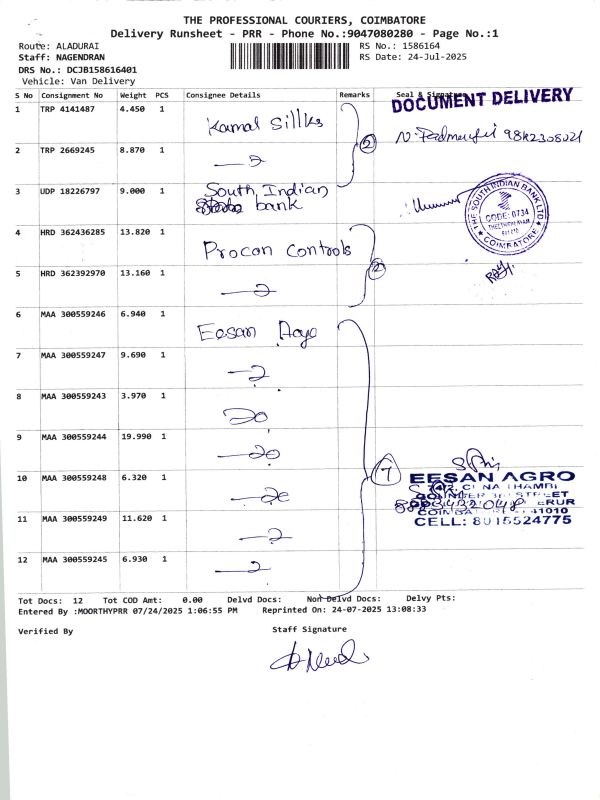 THE PROFESSIONAL COURIERS, COIMBATORE
Delivery Runsheet - PRR - Phone No.:9047080280 - Page No.:1
Route: ALADURAI RS No.: 1586164
Staff: NAGENDRAN RS Date: 24-Jul-2025
DRS No.: DCJB158616401
Vehicle: Van Delivery
S No Consignment No Weight PCS Consignee Details Remarks Seal & Signature
DOCUMENT DELIVERY
1 TRP 4141487 4.450 1 Kamal Sillks
2 TRP 2669245 8.870 1
2
3 UDP 18226797 9.000 1 South Indian
bank
THE SOUTH INDIAN BANK LTD.
CODE: 0734
COIMBATORE
4 HRD 362436285 13.820 1 Procon Controls
5 HRD 362392970 13.160 1
2
6 MAA 300559246 6.940 1 Eesan
7 MAA 300559247 9.690 1
8 MAA 300559243 3.970 1
9 MAA 300559244 19.990 1
10 MAA 300559248 6.320 1
7
EESAN AGRO
STREET
CELL: 8015524775
11 MAA 300559249 11.620 1
12 MAA 300559245 6.930 1
Tot Docs: 12 Tot COD Amt: 0.00 Delvd Docs: Non Delvd Docs: Delvy Pts:
Entered By :MOORTHYPRR 07/24/2025 1:06:55 PM Reprinted On: 24-07-2025 13:08:33
Verified By Staff Signature